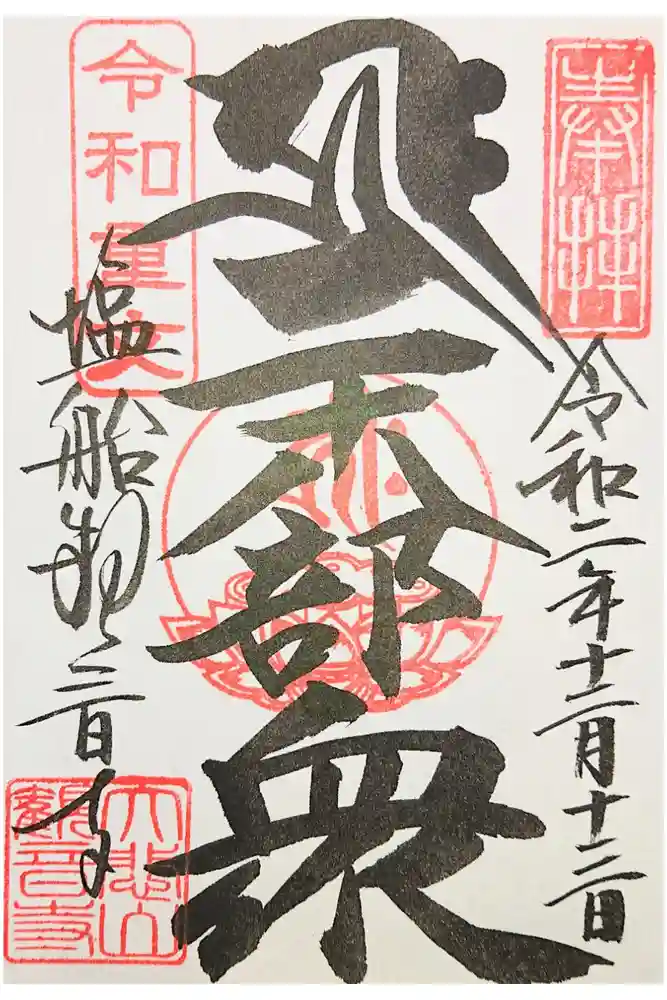 奉拝
令和二年十二月十二日
二十八部衆
令和
塩船観音寺
大悲山
観音寺